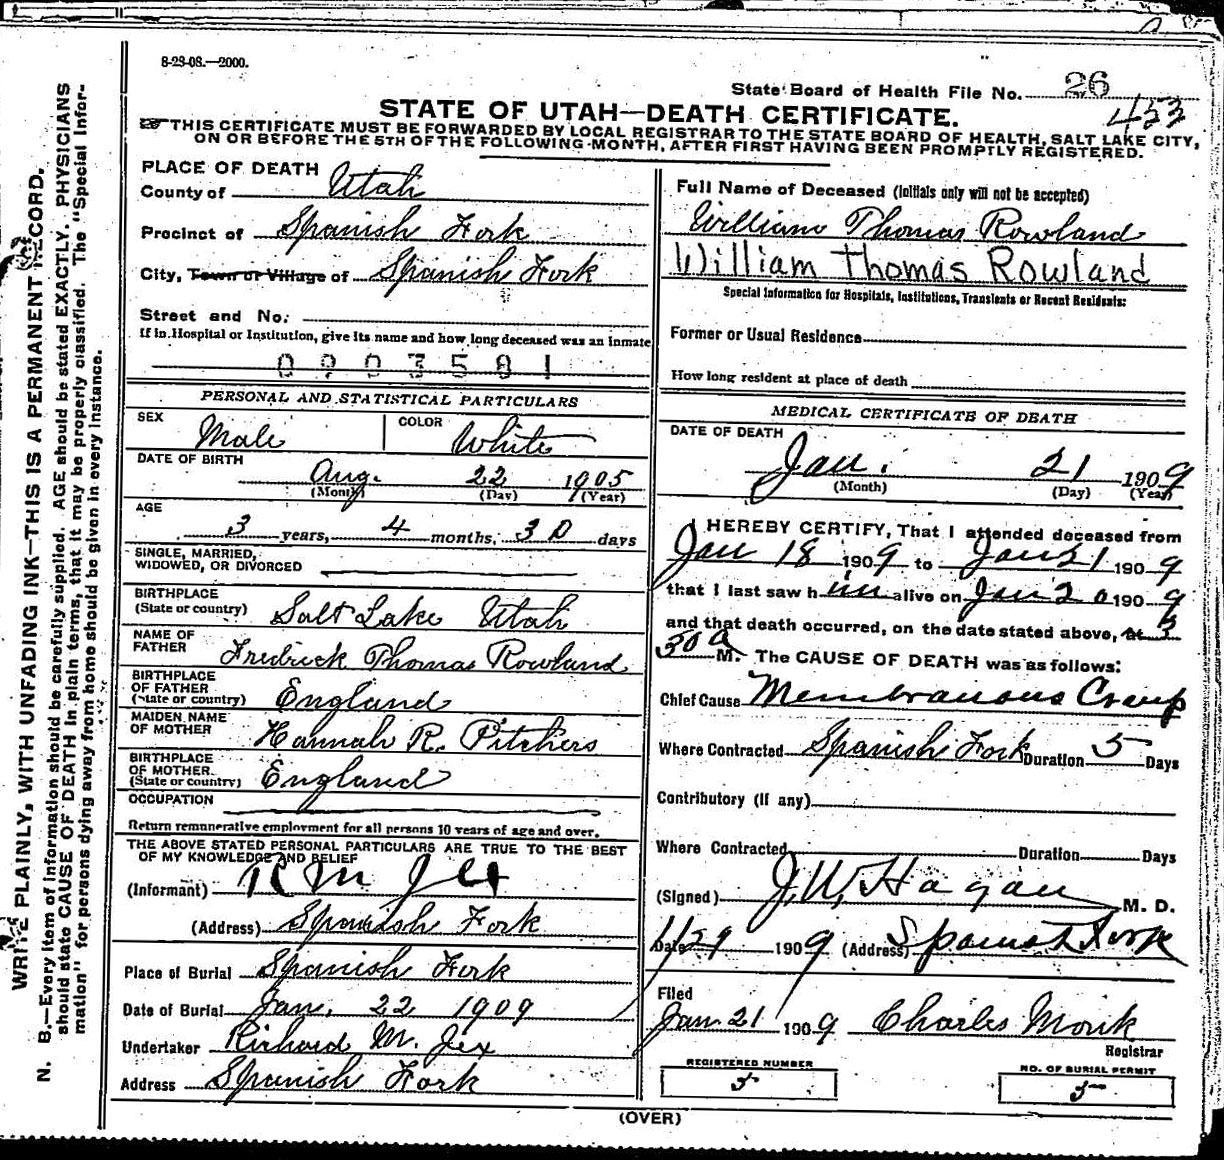 8-23-08.—2000.
State Board of Health File No. 26
453
STATE OF UTAH—DEATH CERTIFICATE.
THIS CERTIFICATE MUST BE FORWARDED BY LOCAL REGISTRAR TO THE STATE BOARD OF HEALTH, SALT LAKE CITY,
ON OR BEFORE THE 5TH OF THE FOLLOWING MONTH, AFTER FIRST HAVING BEEN PROMPTLY REGISTERED.
PLACE OF DEATH
County of Utah
Precinct of Spanish Fork
City, Town or Village of Spanish Fork
Street and No:
If in Hospital or Institution, give its name and how long deceased was an inmate
0903581
PERSONAL AND STATISTICAL PARTICULARS
SEX Male COLOR White
DATE OF BIRTH Aug. 22 1905
(Month) (Day) (Year)
AGE
3 years, 4 months, 30 days
SINGLE, MARRIED,
WIDOWED, OR DIVORCED
BIRTHPLACE
(State or country) Salt Lake Utah
NAME OF
FATHER Fredrick Thomas Rowland
BIRTHPLACE
OF FATHER
(State or country) England
MAIDEN NAME
OF MOTHER Hannah R. Pitchers
BIRTHPLACE
OF MOTHER
(State or country) England
OCCUPATION
Return remunerative employment for all persons 10 years of age and over.
THE ABOVE STATED PERSONAL PARTICULARS ARE TRUE TO THE BEST
OF MY KNOWLEDGE AND BELIEF
(Informant) R M Jex
(Address) Spanish Fork
Place of Burial Spanish Fork
Date of Burial Jan. 22 1909
Undertaker Richard M. Jex
Address Spanish Fork
Full Name of Deceased (Initials only will not be accepted)
William Thomas Rowland
William Thomas Rowland
Special Information for Hospitals, Institutions, Transients or Recent Residents:
Former or Usual Residence
How long resident at place of death
MEDICAL CERTIFICATE OF DEATH
DATE OF DEATH
Jan. 21 1909
(Month) (Day) (Year)
I HEREBY CERTIFY, That I attended deceased from
Jan 18 1909 to Jan 21 1909
that I last saw h im alive on Jan 20 1909
and that death occurred, on the date stated above, at 3
30 a M. The CAUSE OF DEATH was as follows:
Chief Cause Membranous Croup
Where Contracted Spanish Fork Duration 5 Days
Contributory (If any)
Where Contracted Duration Days
(Signed) J. W. Hagan M. D.
Date 1/29 1909 (Address) Spanish Fork
Filed
Jan 21 1909 Charles Monk
Registrar
REGISTERED NUMBER
5
NO. OF BURIAL PERMIT
5
(OVER)
WRITE PLAINLY, WITH UNFADING INK—THIS IS A PERMANENT RECORD.
N. B.—Every item of information should be carefully supplied. AGE should be stated EXACTLY. PHYSICIANS
should state CAUSE OF DEATH in plain terms, that it may be properly classified. The "Special Infor-
mation" for persons dying away from home should be given in every instance.